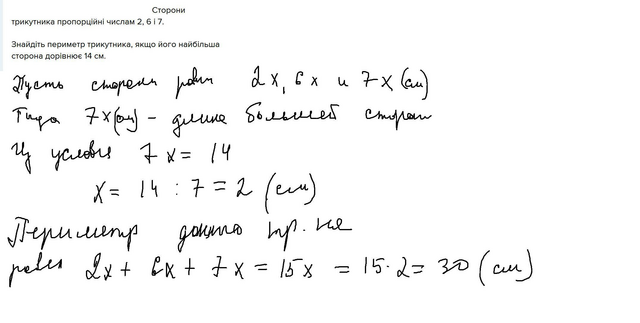 Сторони
трикутника пропорційні числам 2, 6 і 7.
Знайдіть периметр трикутника, якщо його найбільша
сторона дорівнює 14 см.
Пусть стороны равны 2x, 6x и 7x (см)
Тогда 7x (см) - длина большей стороны
Из условия 7x = 14
x = 14 : 7 = 2 (см)
Периметр данного тр-ка
равен 2x + 6x + 7x = 15x = 15·2 = 30 (см)